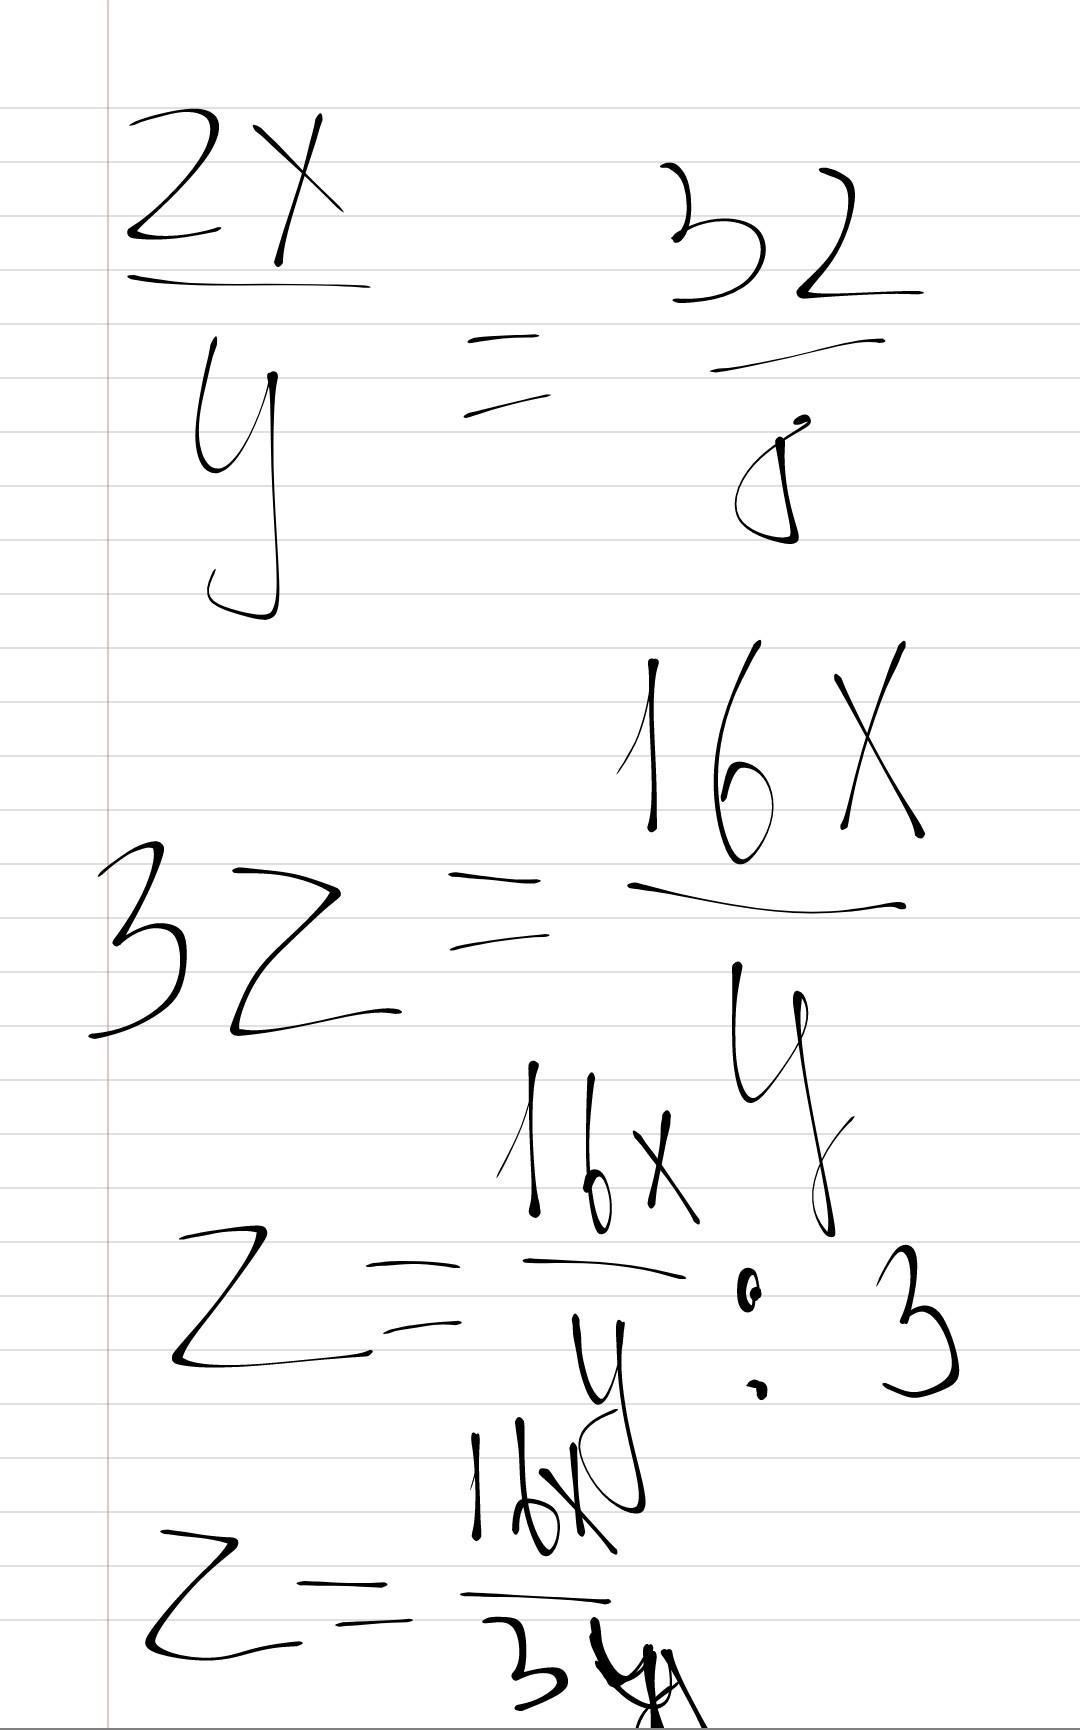 2x/y = 3z/8
3z = 16x/y
z = 16x/y : 3
z = 16x/3y